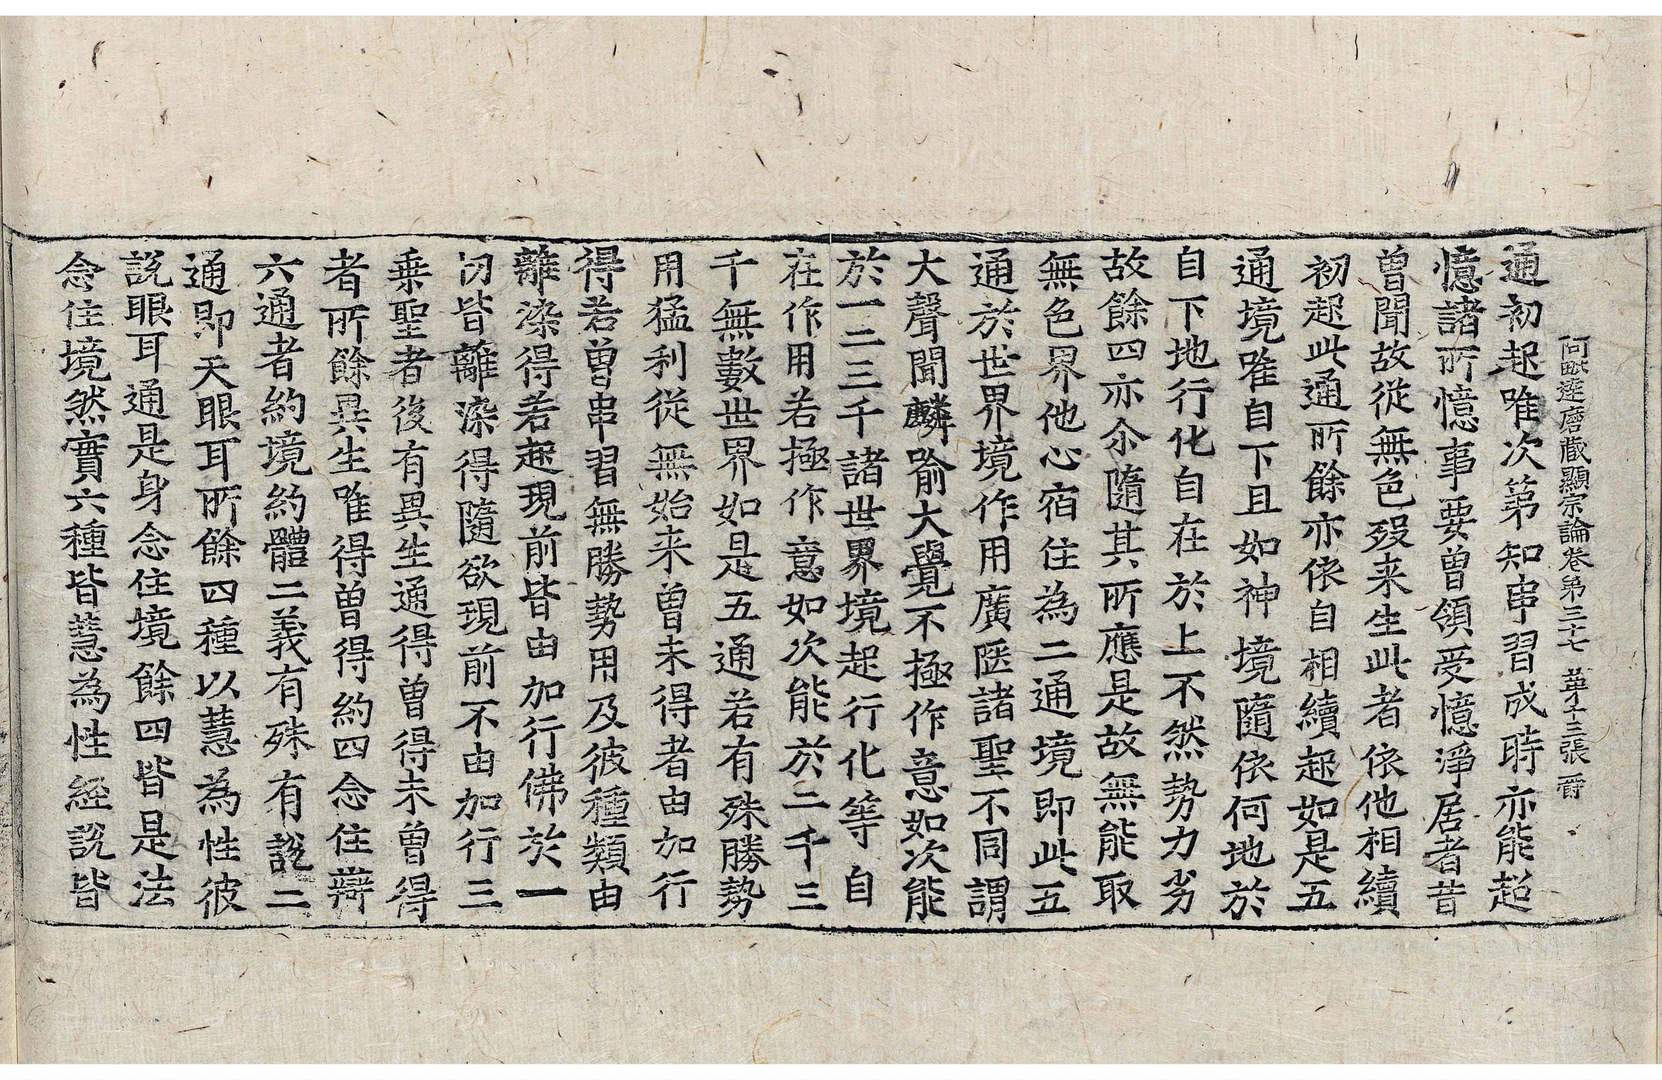 阿毗達磨藏顯宗論卷第三十七 第十三張 爵
通初起唯次第知串習成時亦能超
憶諸所憶事要曾領受憶淨居者昔
曾聞故從無色歿来生此者依他相續
初起此通所餘亦依自相續起如是五
通境唯自下且如神境隨依何地於
自下地行化自在於上不然勢力劣
故餘四亦尒隨其所應是故無能取
無色界他心宿住為二通境即此五
通於世界境作用廣陿諸聖不同謂
大聲聞麟喻大覺不極作意如次能
於一二三千諸世界境起行化等自
在作用若極作意如次能於二千三
千無數世界如是五通若有殊勝勢
用猛利從無始来曾未得者由加行
得若曾串習無勝勢用及彼種類由
離染得若起現前皆由加行佛於一
切皆離染得隨欲現前不由加行三
乗聖者後有異生通得曾得未曾得
者所餘異生唯得曾得約四念住辯
六通者約境約體二義有殊有說二
通即天眼耳所餘四種以慧為性彼
說眼耳通是身念住境餘四皆是法
念住境然實六種皆慧為性經說皆